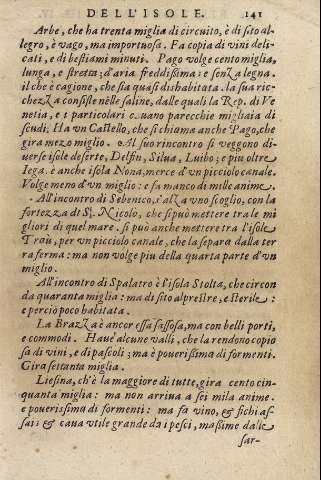 DELL'ISOLE. 141
Arbe, che ha trenta miglia di circuito, è di sito al-
legro, è vago, ma importuosa. Fa copia di vini deli-
cati, e di bestiami minuti. Pago volge cento miglia,
lunga, e stretta; d'aria freddissima: e senza legna.
il che è cagione, che sia quasi dishabitata. la sua ric-
chezza consiste nelle saline, dalle quali la Rep. di Ve
netia, e i particolari cavano parecchie migliaia di
scudi. Ha un Castello, che si chiama anche Pago, che
gira mezo miglio. Al suo rincontro si veggono di-
uerse isole deserte, Delfin, Silua, Luibo; e piu oltre
Iega. è anche isola Nona, merce d'un picciolo canale.
Volge meno d'un miglio: e fa manco di mille anime.
All'incontro di Sebenico, s'alza vno scoglio, con la
fortezza di S. Nicolò, che si può mettere tra le mi
gliori di quel mare. si può anche mettere tra l'isole
Traù, per un picciolo canale, che la separa dalla ter
ra ferma: ma non volge piu della quarta parte d'vn
miglio.
All'incontro di Spalatro è l'isola Stolta, che circon
da quaranta miglia: ma di sito alpestre, e sterile:
e perciò poco habitata.
La Brazza è ancor essa sassosa, ma con belli porti,
e commodi. Haue alcune valli, che la rendono copio
sa di vini, e di pascoli; ma è pouerissima di formenti.
Gira settanta miglia.
Liesina, ch'è la maggiore di tutte, gira cento cin-
quanta miglia: ma non arriua a sei mila anime.
e pouerissima di formenti: ma fa vino, & fichi as-
sai: & caua vtile grande da i pesci, massime dalle
sar-